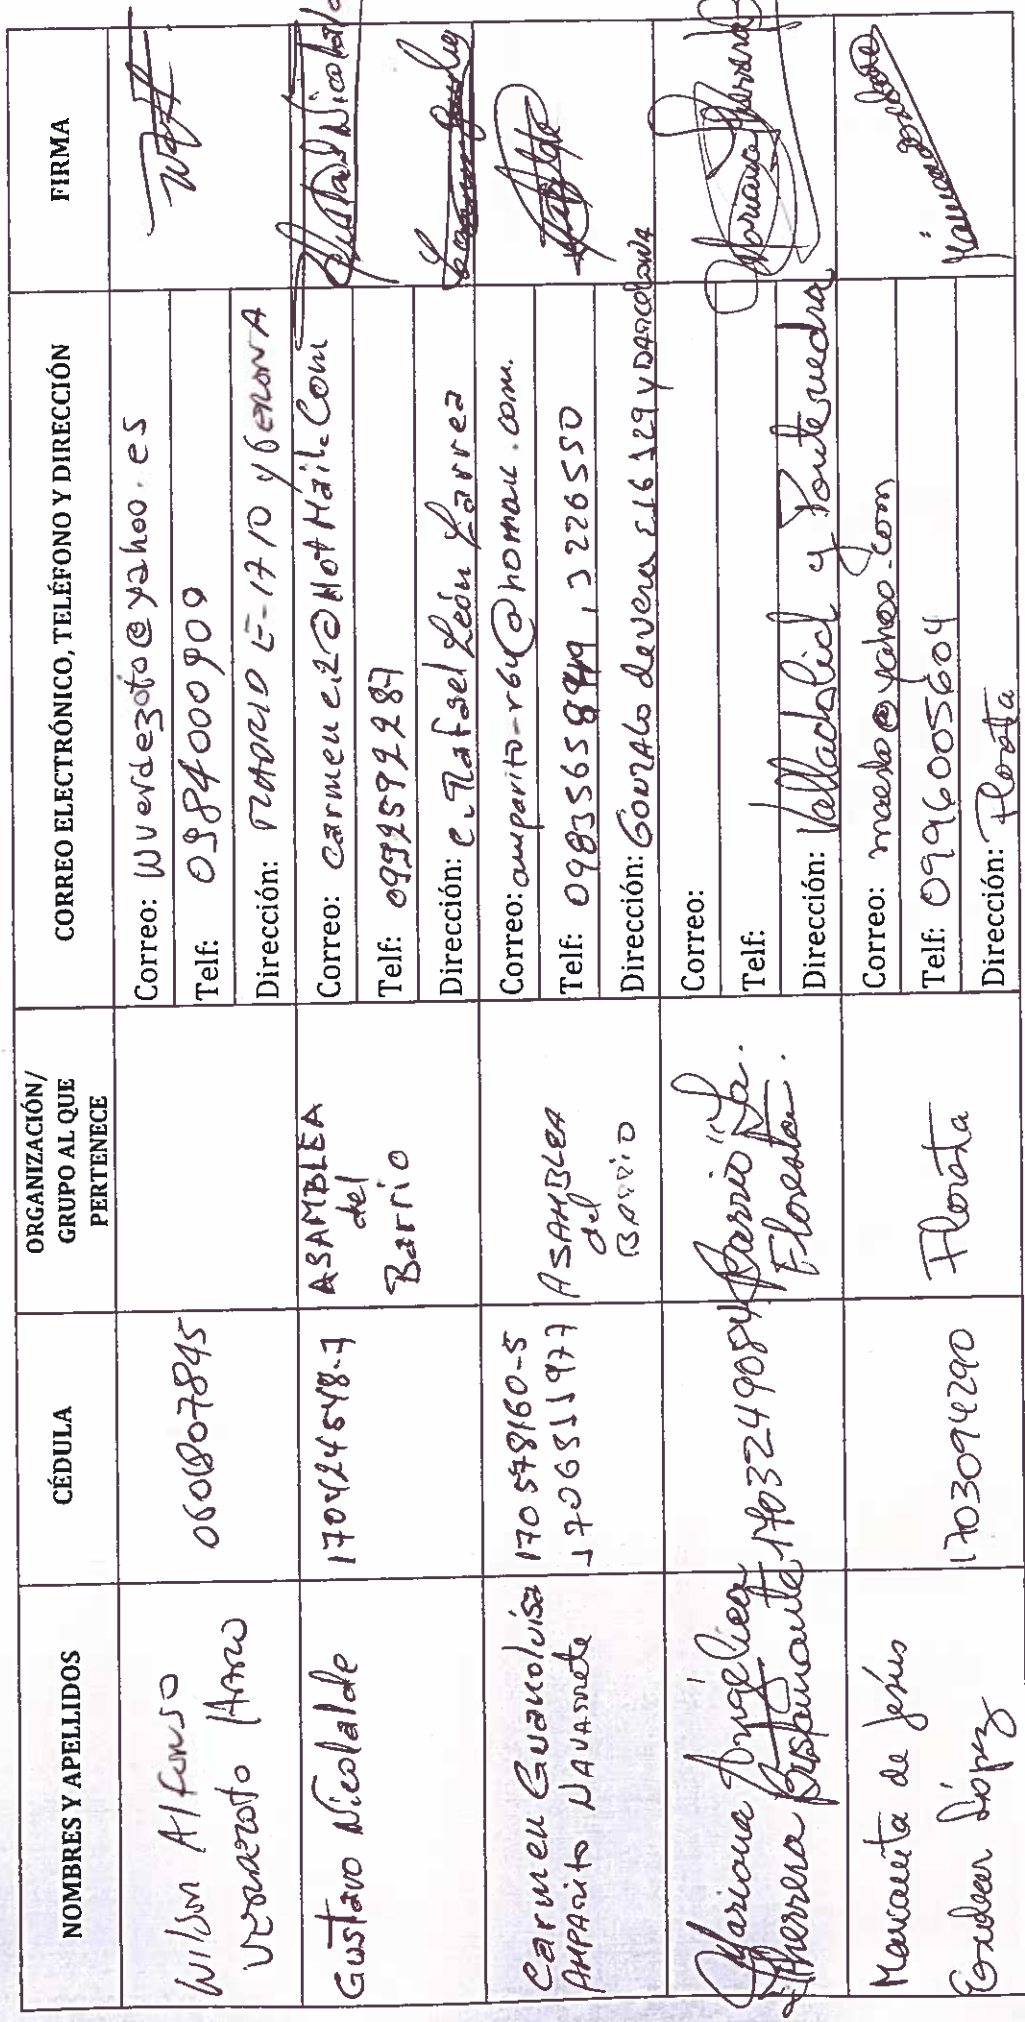 NOMBRES Y APELLIDOS
CÉDULA
ORGANIZACIÓN/
GRUPO AL QUE
PERTENECE
CORREO ELECTRÓNICO, TELÉFONO Y DIRECCIÓN
FIRMA
Wilson Alfonso
Verdezoto
Correo: wverdezoto@yahoo.es
Telf: 0984000909
Dirección: MADRID E-1710 y GERONA
Gustavo Nicolalde
ASAMBLEA
del
Barrio
Correo: carmenci2@HotMail.Com
Telf: 0992592287
Dirección: C. Rafael León Larrea
Gustavo Nicolalde
Carmen Guanoluisa
AMPARITO NAVARRETE
170578160-5
1706511977
ASAMBLEA
del
BARRIO
Correo: amparito-r64@homail.com.
Telf: 0983565
3226550
Dirección: GONZALO de VERA E16 129 y BARCELONA
Mariana Angélica
Herrera Bustamante
1703249084
Barrio "La
Floresta".
Correo:
Telf:
Dirección: Valladolid y Pontevedra
Mariana Herrera
Marianita de Jesús
López
1703094290
Floresta
Correo:
Telf: 0996005604
Dirección: Floresta